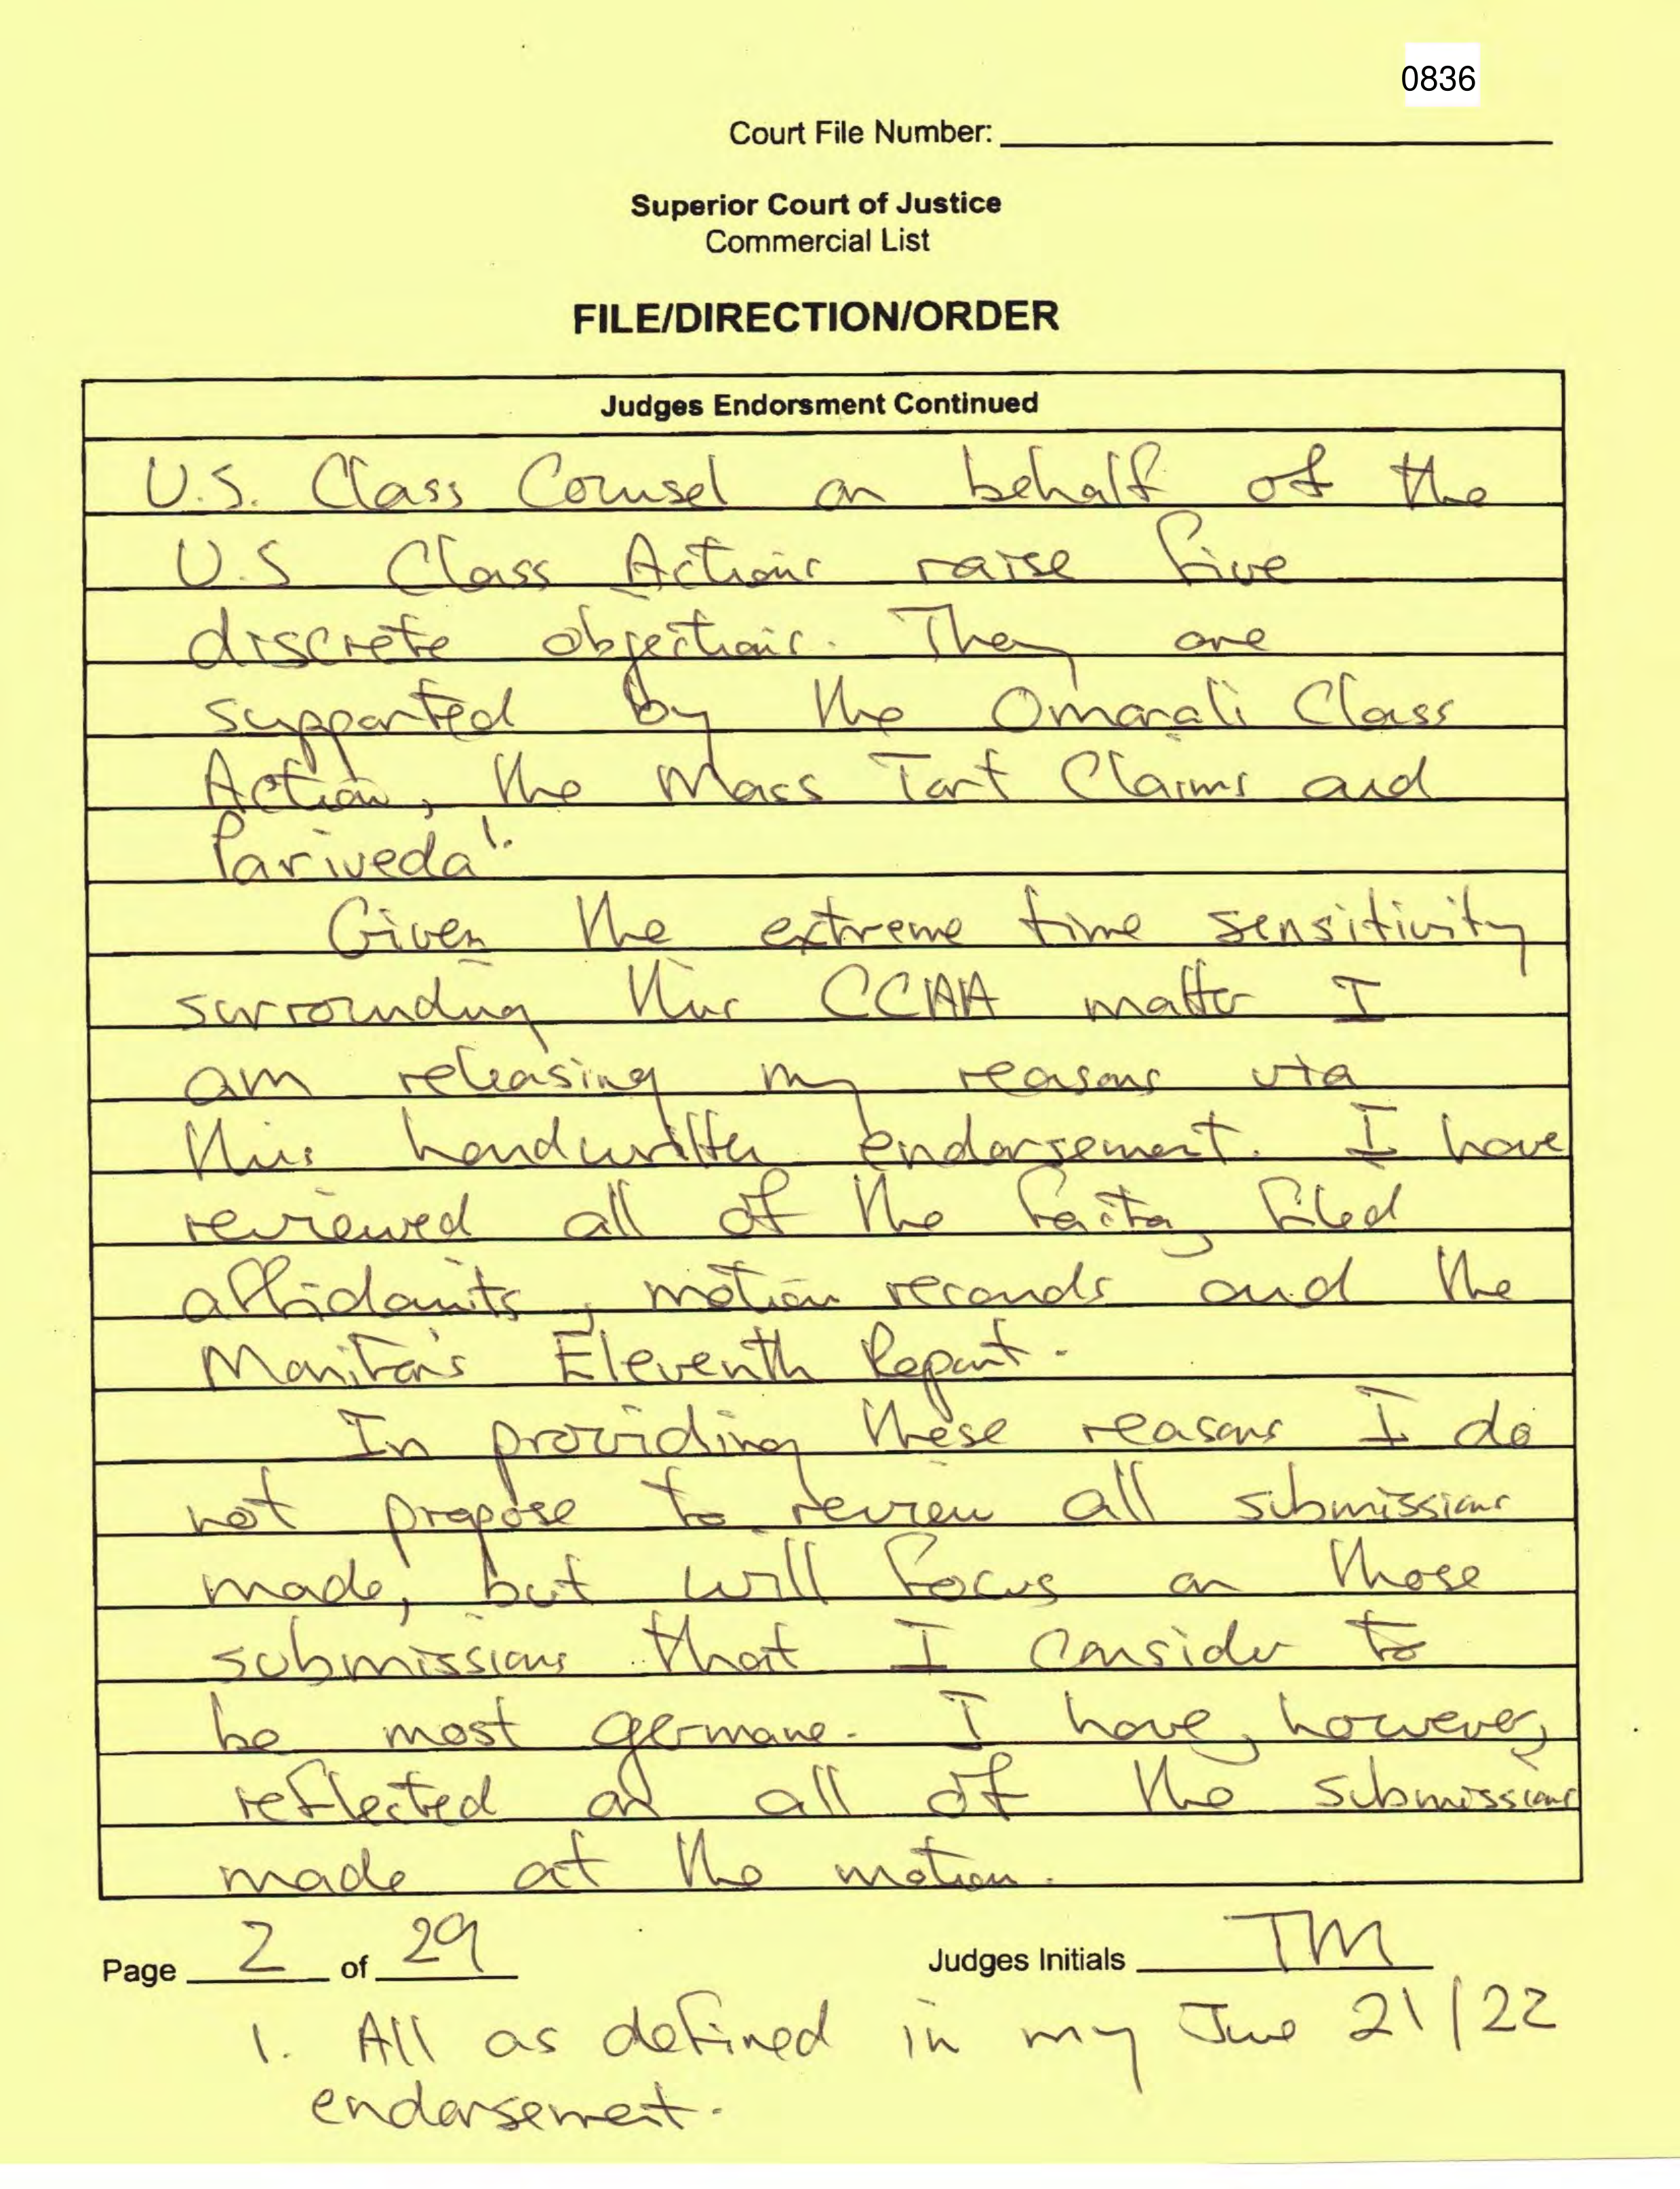 0836
Court File Number:
Superior Court of Justice
Commercial List
FILE/DIRECTION/ORDER
Judges Endorsment Continued
U.S. Class Counsel on behalf of the
U.S Class Actions raise five
discrete objections. They are
supported by the Omarali Class
Action, the Mass Tort Claims and
Pariveda 1.
Given the extreme time sensitivity
surrounding this CCAA matter I
am releasing my reasons via
this handwritten endorsement. I have
reviewed all of the facta, filed
affidavits, motion records and the
Monitor's Eleventh Report.
In providing these reasons I do
not propose to review all submissions
made, but will focus on those
submissions that I consider to
be most germane. I have, however,
reflected on all of the submissions
made at the motion.
Page 2 of 29
Judges Initials TM
1. All as defined in my June 21/22
endorsement.